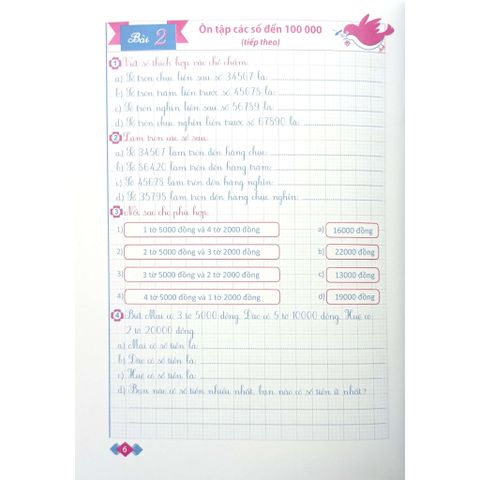 Bài 2
Ôn tập các số đến 100 000
(tiếp theo)
1 Viết số thích hợp vào chỗ chấm:
a) Số tròn chục liền sau số 34567 là:
b) Số tròn trăm liền trước số 45678 là:
c) Số tròn nghìn liền sau số 56789 là:
d) Số tròn chục nghìn liền trước số 67890 là:
2 Làm tròn các số sau:
a) Số 34567 làm tròn đến hàng chục:
b) Số 86420 làm tròn đến hàng trăm:
c) Số 45678 làm tròn đến hàng nghìn:
d) Số 35795 làm tròn đến hàng chục nghìn:
3 Nối sao cho phù hợp:
1) 1 tờ 5000 đồng và 4 tờ 2000 đồng a) 16000 đồng
2) 2 tờ 5000 đồng và 3 tờ 2000 đồng b) 22000 đồng
3) 3 tờ 5000 đồng và 2 tờ 2000 đồng c) 13000 đồng
4) 4 tờ 5000 đồng và 1 tờ 2000 đồng d) 19000 đồng
4 Biết Mai có 3 tờ 5000 đồng, Đức có 5 tờ 10000 đồng, Huệ có
2 tờ 20000 đồng.
a) Mai có số tiền là:
b) Đức có số tiền là:
c) Huệ có số tiền là:
d) Bạn nào có số tiền nhiều nhất, bạn nào có số tiền ít nhất?
6